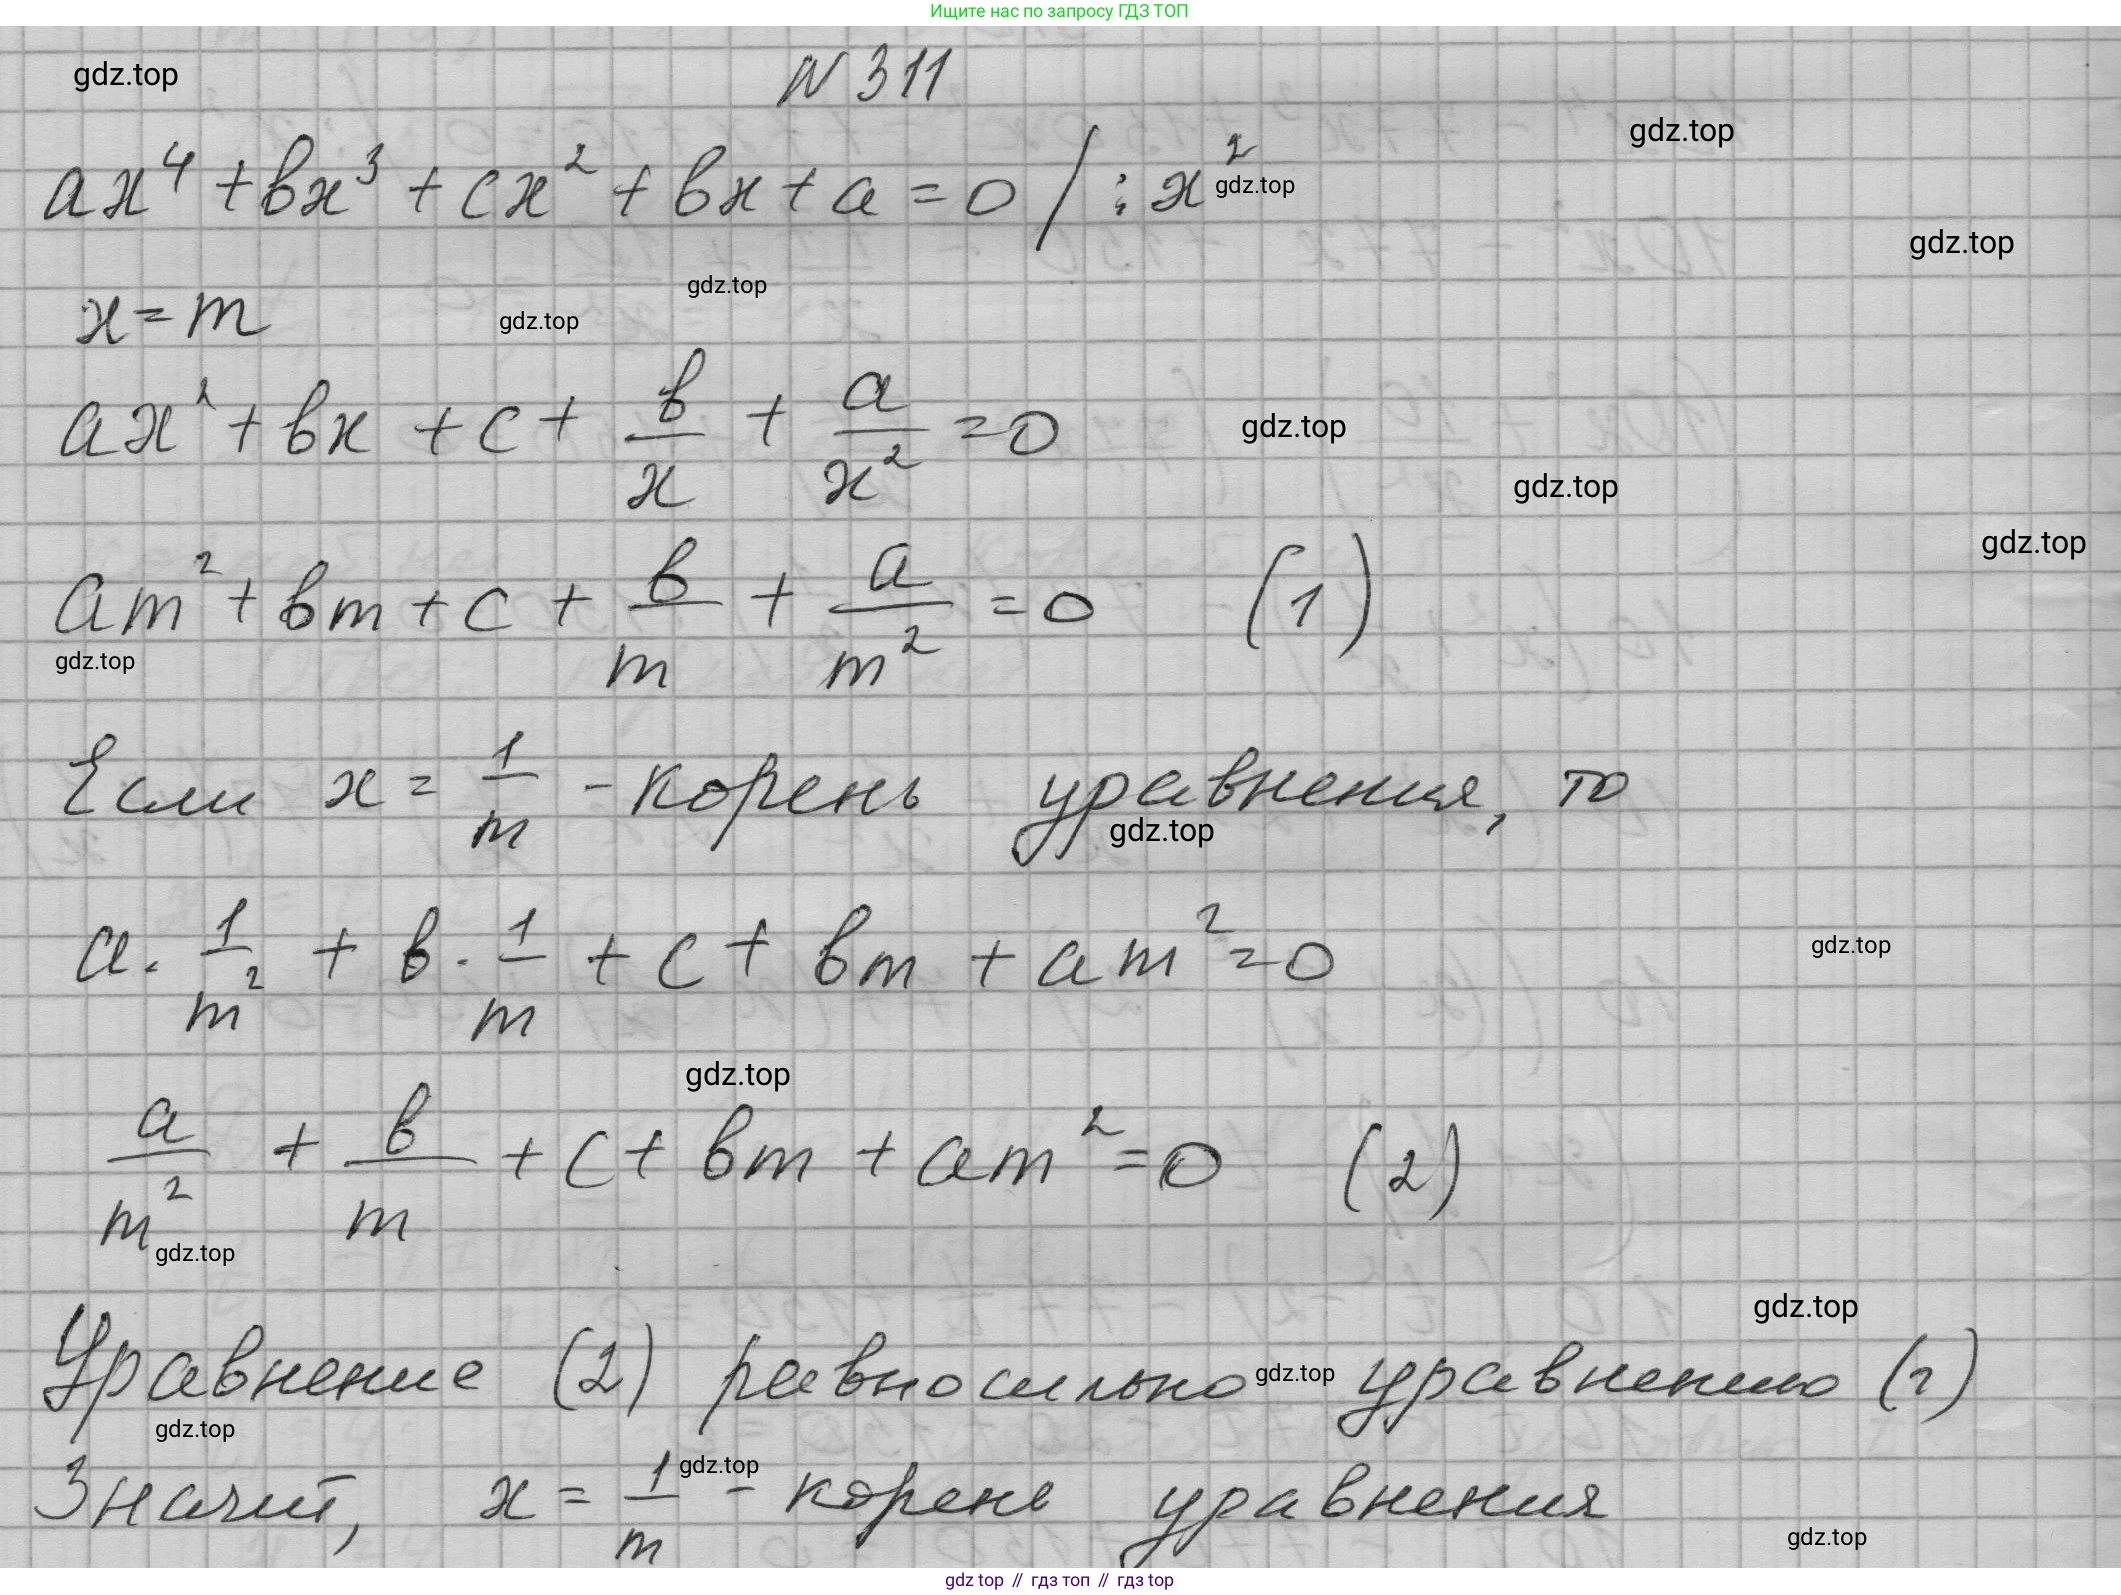 Ищите нас по запросу ГДЗ ТОП
N 311
gdz.top
gdz.top
ax⁴ + вx³ + cx² + вx + a = 0 / : x²
gdz.top
gdz.top
x = m
gdz.top
gdz.top
ax² + вx + c + в/x + a/x² = 0
gdz.top
gdz.top
gdz.top
am² + вm + c + в/m + a/m² = 0 (1)
gdz.top
Если x = 1/m - корень уравнения, то
gdz.top
a · 1/m² + в · 1/m + c + вm + am² = 0
gdz.top
gdz.top
a/m² + в/m + c + вm + am² = 0 (2)
gdz.top
gdz.top
Уравнение (2) равносильно уравнению (1)
gdz.top
gdz.top
Значит, x = 1/m - корень уравнения
gdz.top
gdz.top
gdz top // гдз топ // гдз top